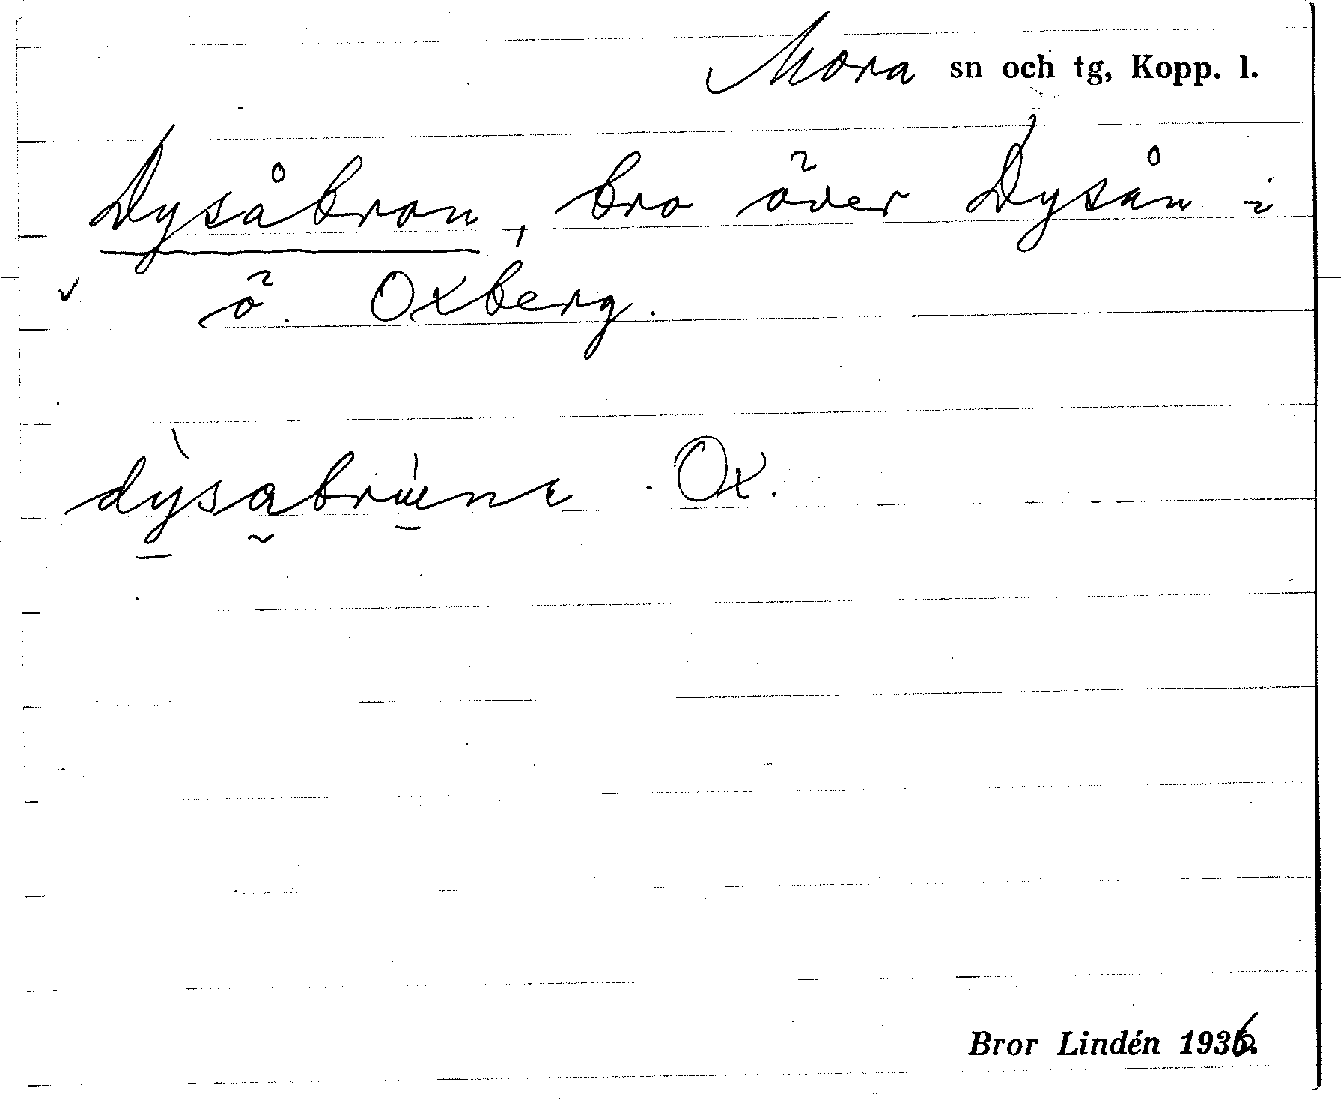 Mora sn och tg, Kopp. l.
Dysåbron, bro över Dysån i
ö. Oxberg.
Ox.
Bror Lindén 1936.